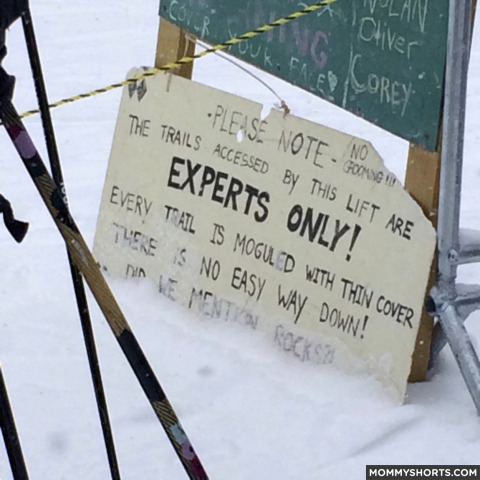 COVER YOUR FACE
NOLAN
Oliver
COREY
- PLEASE NOTE -
NO
GROOMING!!!
THE TRAILS ACCESSED BY THIS LIFT ARE
EXPERTS ONLY!
EVERY TRAIL IS MOGULED WITH THIN COVER
THERE IS NO EASY WAY DOWN!
DID WE MENTION ROCKS?!
MOMMYSHORTS.COM